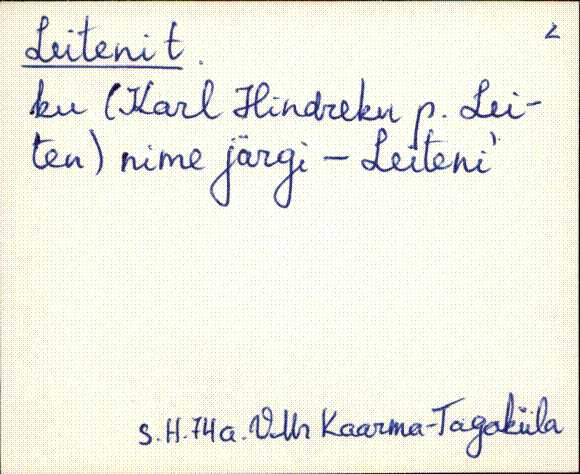 Leiteni t. 2
ku (Karl Hindreku p. Lei-
ten) nime järgi – Leiteni'
s. H. 74a. VMr Kaarma-Tagaküla